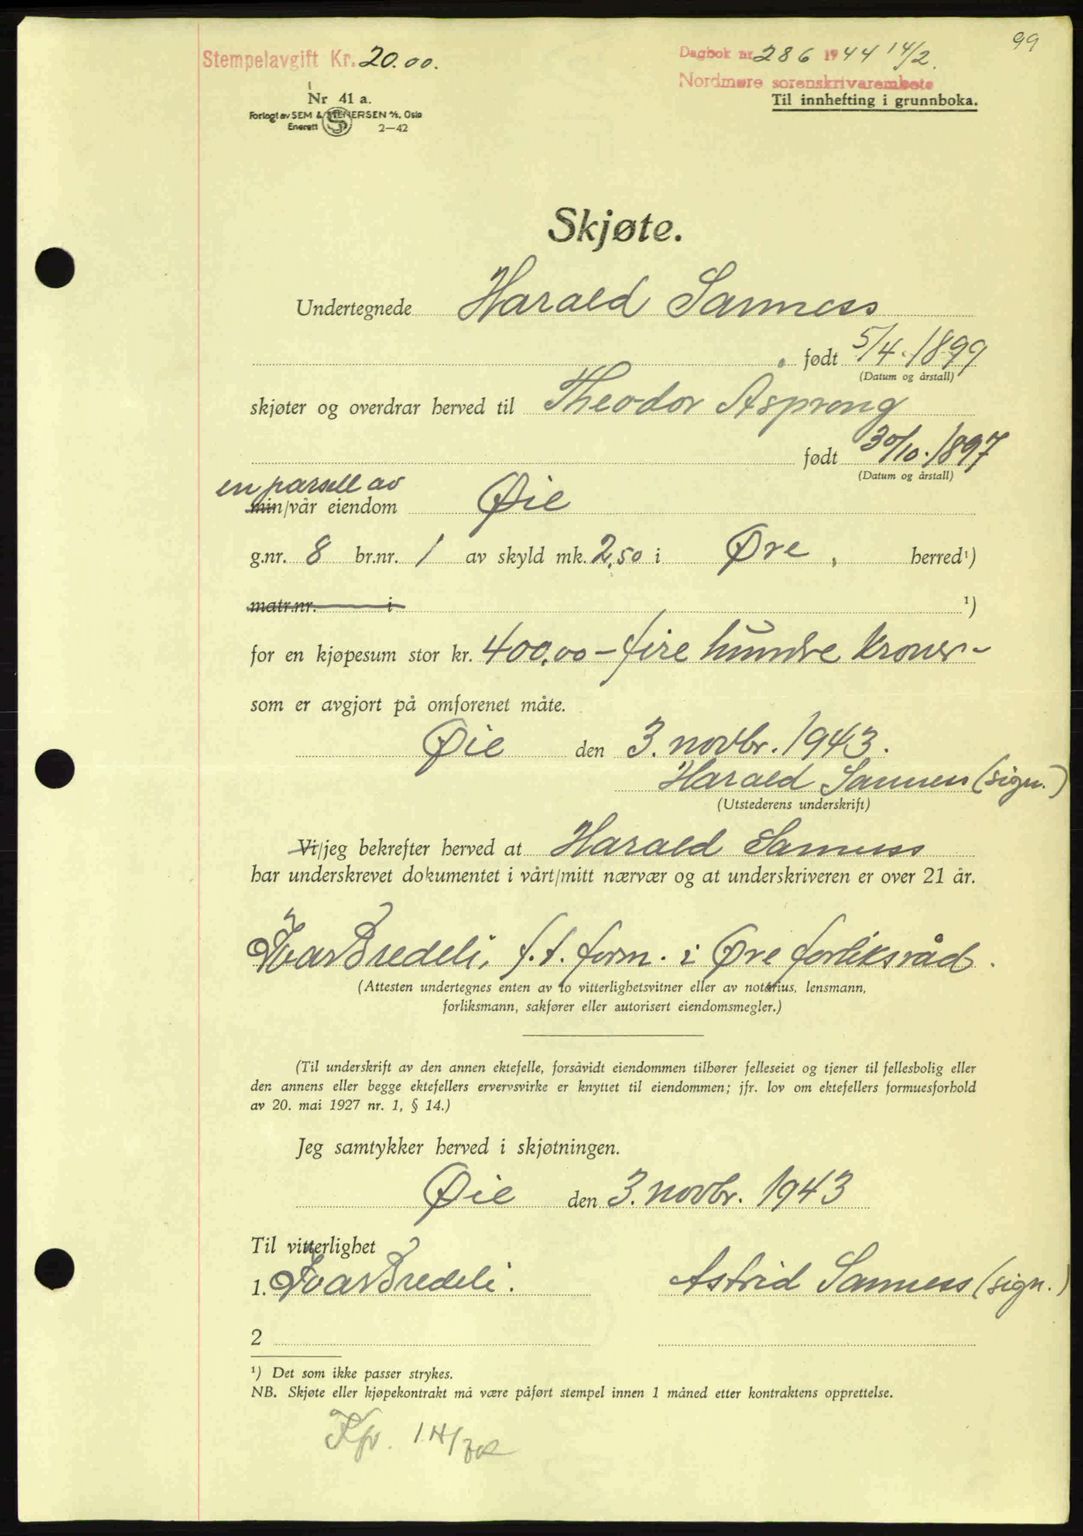 99
Stempelavgift Kr. 20.00.
Dagbok nr. 286 1944 14/2.
Nordmøre sorenskrivarembete
Nr 41 a.
Til innhefting i grunnboka.
Forlagt av SEM & STENERSEN A/S, Oslo
Enerett 2—42
Skjøte.
Undertegnede Harald Sanness
født 5/4. 1899
(Datum og årstall)
skjøter og overdrar herved til Theodor Åsprong
født 30/10. 1897
(Datum og årstall)
en parsell av
min/vår eiendom Øie
g.nr. 8 br.nr. 1 av skyld mk. 2,50 i Øre, herred¹)
matr.nr. i ¹)
for en kjøpesum stor kr. 400.00 – fire hundre kroner –
som er avgjort på omforenet måte.
Øie den 3. novbr. 1943.
Harald Sanness (sign.)
(Utstederens underskrift)
Vi/jeg bekrefter herved at Harald Sanness
har underskrevet dokumentet i vårt/mitt nærvær og at underskriveren er over 21 år.
Ivar Bredeli, f.t. form. i Øre forliksråd.
(Attesten undertegnes enten av to vitterlighetsvitner eller av notarius, lensmann,
forliksmann, sakfører eller autorisert eiendomsmegler.)
(Til underskrift av den annen ektefelle, forsåvidt eiendommen tilhører felleseiet og tjener til fellesbolig eller
den annens eller begge ektefellers ervervsvirke er knyttet til eiendommen; jfr. lov om ektefellers formuesforhold
av 20. mai 1927 nr. 1, § 14.)
Jeg samtykker herved i skjøtningen.
Øie den 3. novbr. 1943
Til vitterlighet
1. Ivar Bredeli. Astrid Sanness (sign.)
2
¹) Det som ikke passer strykes.
NB. Skjøte eller kjøpekontrakt må være påført stempel innen 1 måned etter kontraktens opprettelse.